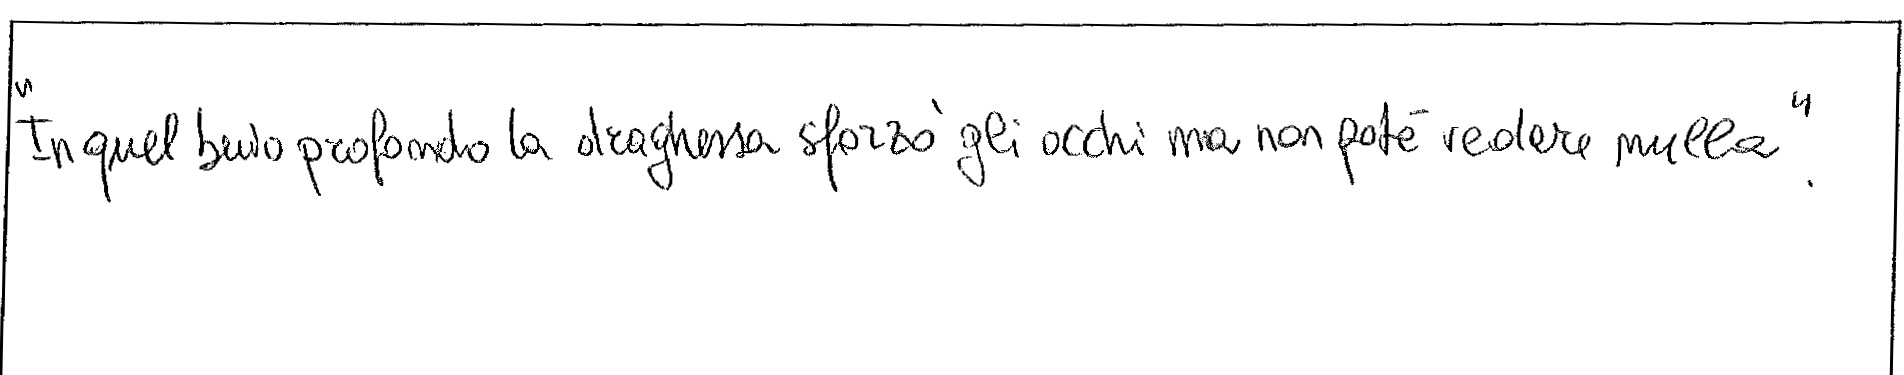 "In quel buio profondo la draghessa sforzò gli occhi ma non poté vedere nulla".